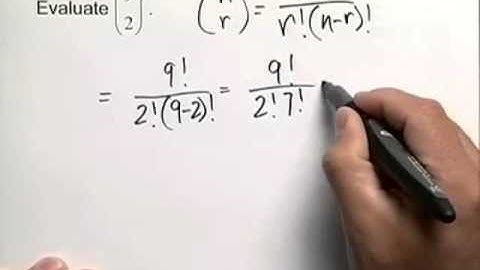 Evaluate ( 2 ) . ( r ) = r!(n-r)!
= 9! / 2!(9-2)! = 9! / 2!7!